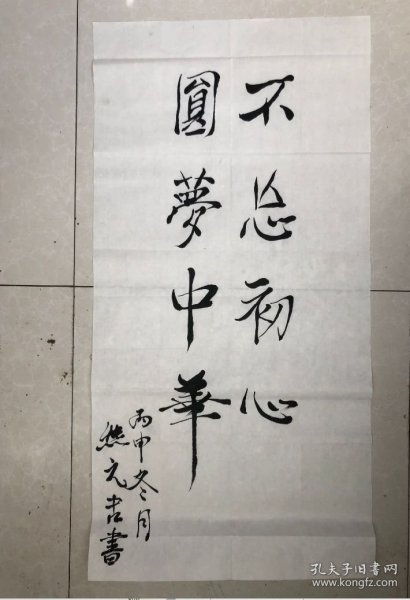 不忘初心
圓夢中華
丙申冬月
熊元吉書
孔夫子旧书网
www.kongfz.com